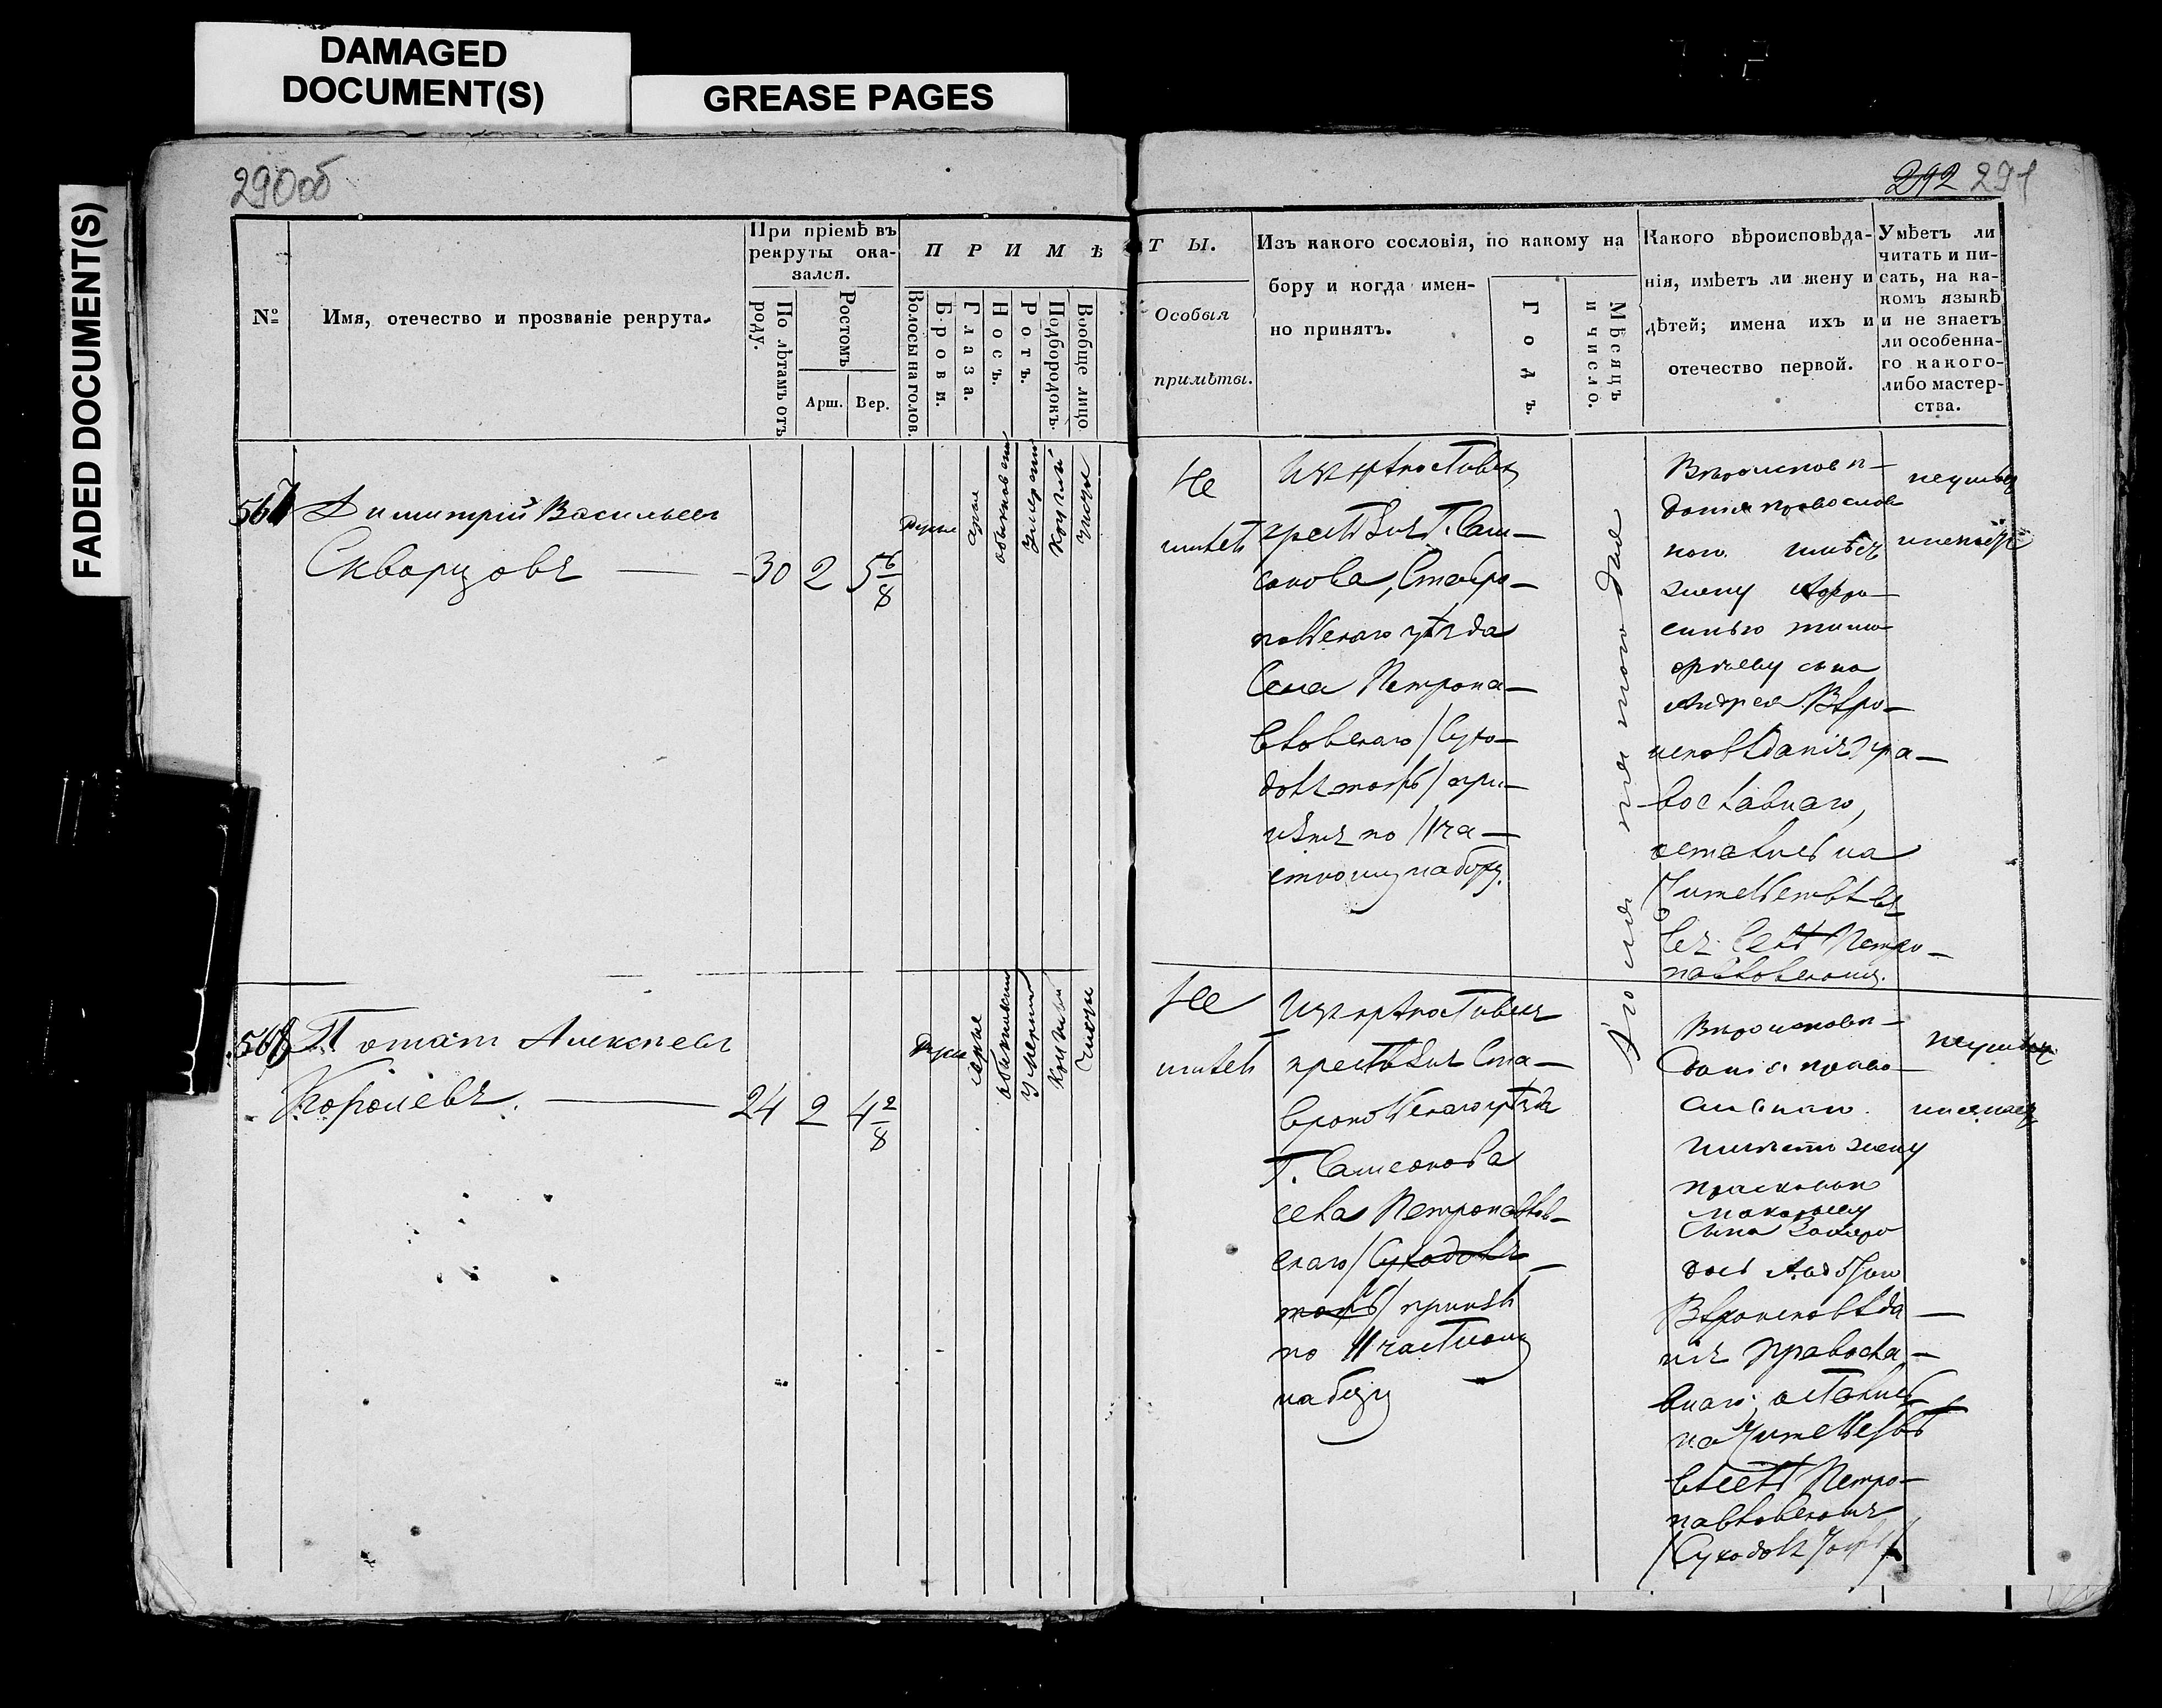 DAMAGED
DOCUMENT(S)
GREASE PAGES
FADED DOCUMENT(S)
290об
292 291
№
Имя, отечество и прозваніе рекрута.
При пріемѣ въ
рекруты ока-
зался.
По лѣтамъ отъ
роду.
Ростомъ
Арш. Вер.
ПРИМѢ
Волосы на голов.
Брови.
Глаза.
Носъ.
Ротъ.
Подбородокъ.
Вообще лицо
ТЫ.
Особыя
примѣты.
Изъ какого сословія, по какому на
бору и когда имен-
но принятъ.
Годъ.
Мѣсяцъ
и число.
Какого вѣроисповѣда-
нія, имѣетъ ли жену и
дѣтей; имена ихъ и
отечество первой.
Умѣетъ ли
читать и пи-
сать, на ка-
комъ языкѣ
и не знаетъ
ли особенна-
го какого-
либо мастер-
ства.
567
Димитрий Васильевъ
Скварцовъ — 30 2 5 6/8
русые
обыкновен
умерен
круглый
чистое
Не
имѣетъ
Изъ крѣпостныхъ
крестьянъ Г. Сам-
сонова, Ставро-
польскаго уѣзда
Села Петропа-
вловскаго /Сухо-
долъ тожъ/ при-
нятъ по 11 ча-
стному набору.
Вѣроисповѣ-
дания православ
имѣетъ
жену Афро-
синью
сына
Андрея. Вѣро-
исповѣданія пра-
вославнаго,
остались на
жительствѣ
въ селѣ Петро-
павловскомъ.
неумѣетъ
568
Потапъ Алексѣевъ
Королевъ. — 24 2 4 2/8
русые
серые
умерен
чистое
Не
имѣетъ
Изъ крѣпостныхъ
крестьянъ Ста-
вропольскаго уѣзда
Г. Самсонова
села Петропавлов-
скаго /Суходолъ
тожъ/ принятъ
по 11 частному
набору
Вѣроисповѣ-
дания право-
славнаго.
Имѣетъ жену
Прасковью
Макарьеву
Сына
Вѣроисповѣда-
нія правосла-
внаго, остались
на жительствѣ
въ селѣ Петро-
павловскомъ
/Суходолъ тожъ/
неумѣетъ